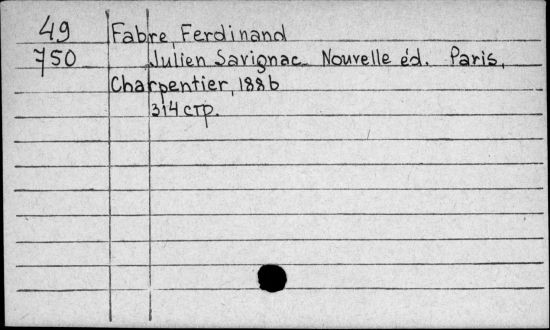 49 Fabre, Ferdinand
750 Julien Savignac. Nouvelle éd. Paris,
Charpentier, 1886
314 стр.